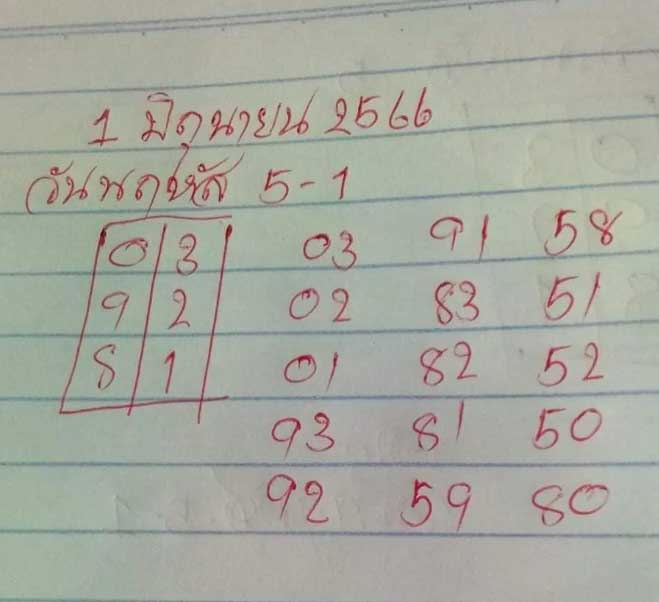 1 มิถุนายน 2566
วันพฤหัส 5-1
0 3 03 91 58
9 2 02 83 51
8 1 01 82 52
93 81 50
92 59 80